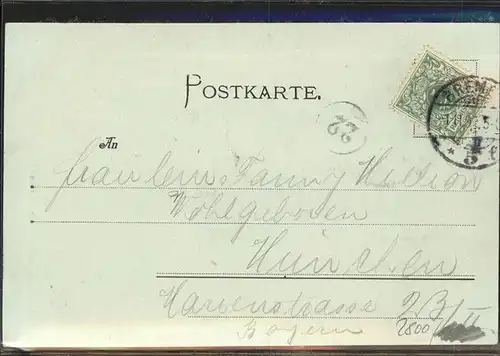 POSTKARTE.
BREME
22
An
Fräulein Fanny
Wohlgeboren
München
Marienstrasse 23/II
Bayern
2800